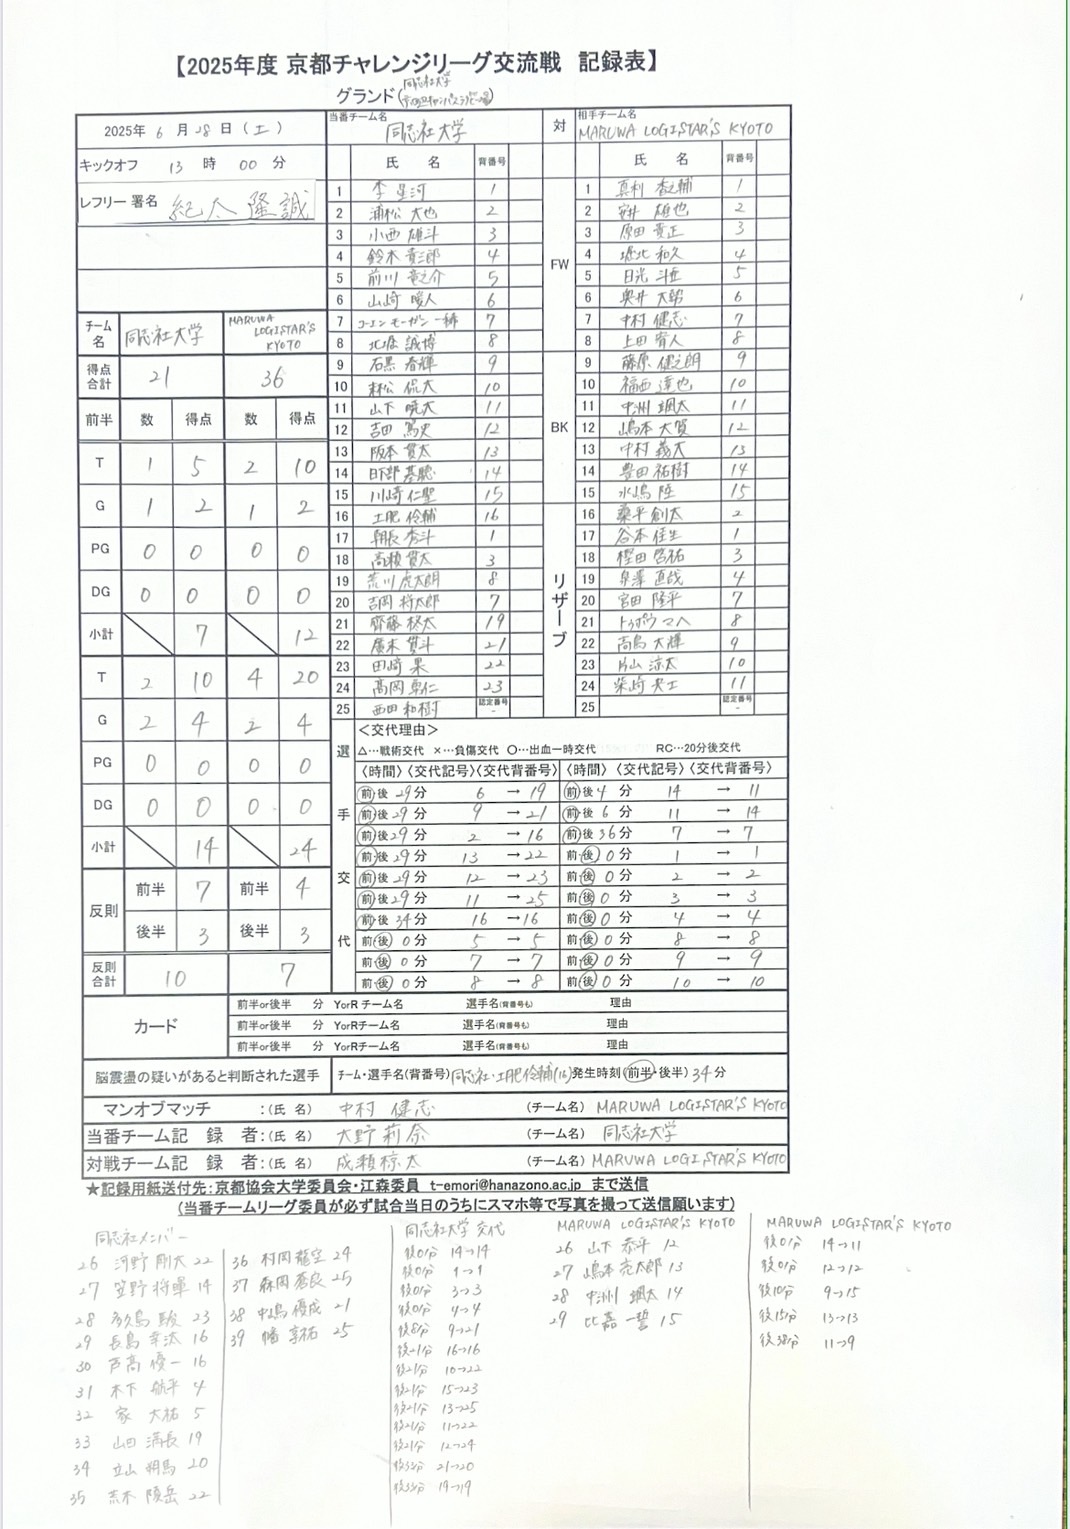 【2025年度 京都チャレンジリーグ交流戦 記録表】
グランド(同志社大学
2025年 6 月 28 日 (土)
キックオフ 13 時 00 分
レフリー署名 紀太 隆誠
当番チーム名 同志社大学 対 相手チーム名 MARUWA LOGISTAR'S KYOTO
氏 名 背番号 氏 名 背番号
FW
1 李 星河 1 1 真利 1
2 浦松 大也 2 2 安井 雄也 2
3 小西 雄斗 3 3 原田 貴正 3
4 鈴木 貴三郎 4 4 堀北 和久 4
5 前川 竜之介 5 5 日光 5
6 山崎 暖人 6 6 奥井 6
7 コーエン モーガン 一稀 7 7 中村 健志 7
8 北原 誠博 8 8 上田 宥人 8
BK
9 石黒 春輝 9 9 藤原 健之朗 9
10 林松 侃大 10 10 福西 達也 10
11 山下 暁大 11 11 中洲 颯太 11
12 吉田 篤史 12 12 嶋本 大賀 12
13 阪本 貫太 13 13 中村 義大 13
14 日下部 基聡 14 14 豊田 祐樹 14
15 川崎 仁聖 15 15 水嶋 陸 15
リザーブ
16 土肥 伶輔 16 16 桑平 創太 2
17 朝長 秀斗 1 17 谷本 佳生 1
18 高瀬 貫太 3 18 樫田 啓祐 3
19 荒川 虎太朗 8 19 泉澤 直哉 4
20 吉岡 将太郎 7 20 宮田 隆平 7
21 齊藤 柊太 19 21 トゥポウ マへ 8
22 廣末 貫斗 21 22 高島 大輝 9
23 田崎 果 22 23 片山 涼太 10
24 高岡 卓仁 23 24 柴崎 央士 11
25 西田 和樹 認定番号 - 25 認定番号 -
チーム名 同志社大学 MARUWA LOGISTAR'S KYOTO
得点合計 21 36
前半 数 得点 数 得点
T 1 5 2 10
G 1 2 1 2
PG 0 0 0 0
DG 0 0 0 0
小計 7 12
T 2 10 4 20
G 2 4 2 4
PG 0 0 0 0
DG 0 0 0 0
小計 14 24
反則 前半 7 前半 4
後半 3 後半 3
反則合計 10 7
選手交代
<交代理由>
△…戦術交代 ×…負傷交代 〇…出血一時交代 RC…20分後交代
〈時間〉〈交代記号〉〈交代背番号〉 〈時間〉 〈交代記号〉 〈交代背番号〉
前・後 29分 6 → 19 前・後 4 分 14 → 11
前・後 29分 9 → 21 前・後 6 分 11 → 14
前・後 29分 2 → 16 前・後 36分 7 → 7
前・後 29分 13 → 22 前・後 0 分 1 → 1
前・後 29分 12 → 23 前・後 0 分 2 → 2
前・後 29分 11 → 25 前・後 0 分 3 → 3
前・後 34分 16 → 16 前・後 0 分 4 → 4
前・後 0 分 5 → 5 前・後 0 分 8 → 8
前・後 0 分 7 → 7 前・後 0 分 9 → 9
前・後 0 分 8 → 8 前・後 0 分 10 → 10
カード
前半or後半 分 YorR チーム名 選手名(背番号も) 理由
前半or後半 分 YorRチーム名 選手名(背番号も) 理由
前半or後半 分 YorRチーム名 選手名(背番号も) 理由
脳震盪の疑いがあると判断された選手 チーム・選手名(背番号) 同志社・土肥伶輔(16) 発生時刻(前半・後半) 34分
マンオブマッチ :(氏 名) 中村 健志 (チーム名) MARUWA LOGISTAR'S KYOTO
当番チーム記 録 者:(氏 名) 大野 莉奈 (チーム名) 同志社大学
対戦チーム記 録 者:(氏 名) 成瀬 椋太 (チーム名) MARUWA LOGISTAR'S KYOTO
★記録用紙送付先:京都協会大学委員会・江森委員 t-emori@hanazono.ac.jp まで送信
(当番チームリーグ委員が必ず試合当日のうちにスマホ等で写真を撮って送信願います)
同志社メンバー
26 河野 剛大 22
27 笠野 将暉 14
28 多久島 駿 23
29 長島 幸汰 16
30 芦高 優一 16
31 木下 航平 4
32 家 大祐 5
33 山田 満長 19
34 立山 翔馬 20
35 荒木 陵岳 22
36 村岡 龍空 24
37 森岡 蒼良 25
38 中嶋 優成 21
39 幡 享祐 25
同志社大学 交代
後0分 14→14
後0分 1→1
後0分 3→3
後0分 4→4
後8分 9→21
後21分 16→16
後21分 10→22
後21分 15→23
後21分 13→25
後21分 11→22
後21分 12→24
後32分 21→20
後32分 19→19
MARUWA LOGISTAR'S KYOTO
26 山下 恭平 12
27 嶋本 亮太郎 13
28 中洲 颯太 14
29 比嘉 一哲 15
MARUWA LOGISTAR'S KYOTO
後0分 14→11
後0分 12→12
後10分 9→15
後15分 13→13
後38分 11→9